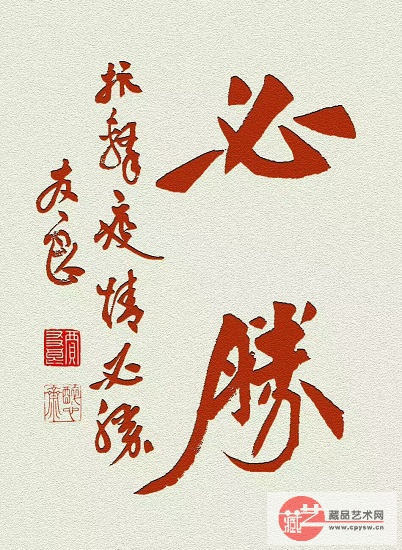 必勝
抗擊疫情必勝
友良
藏艺
藏品艺术网
www.cpysw.cn